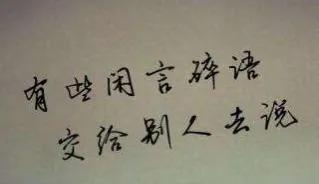 有些闲言碎语
交给别人去说